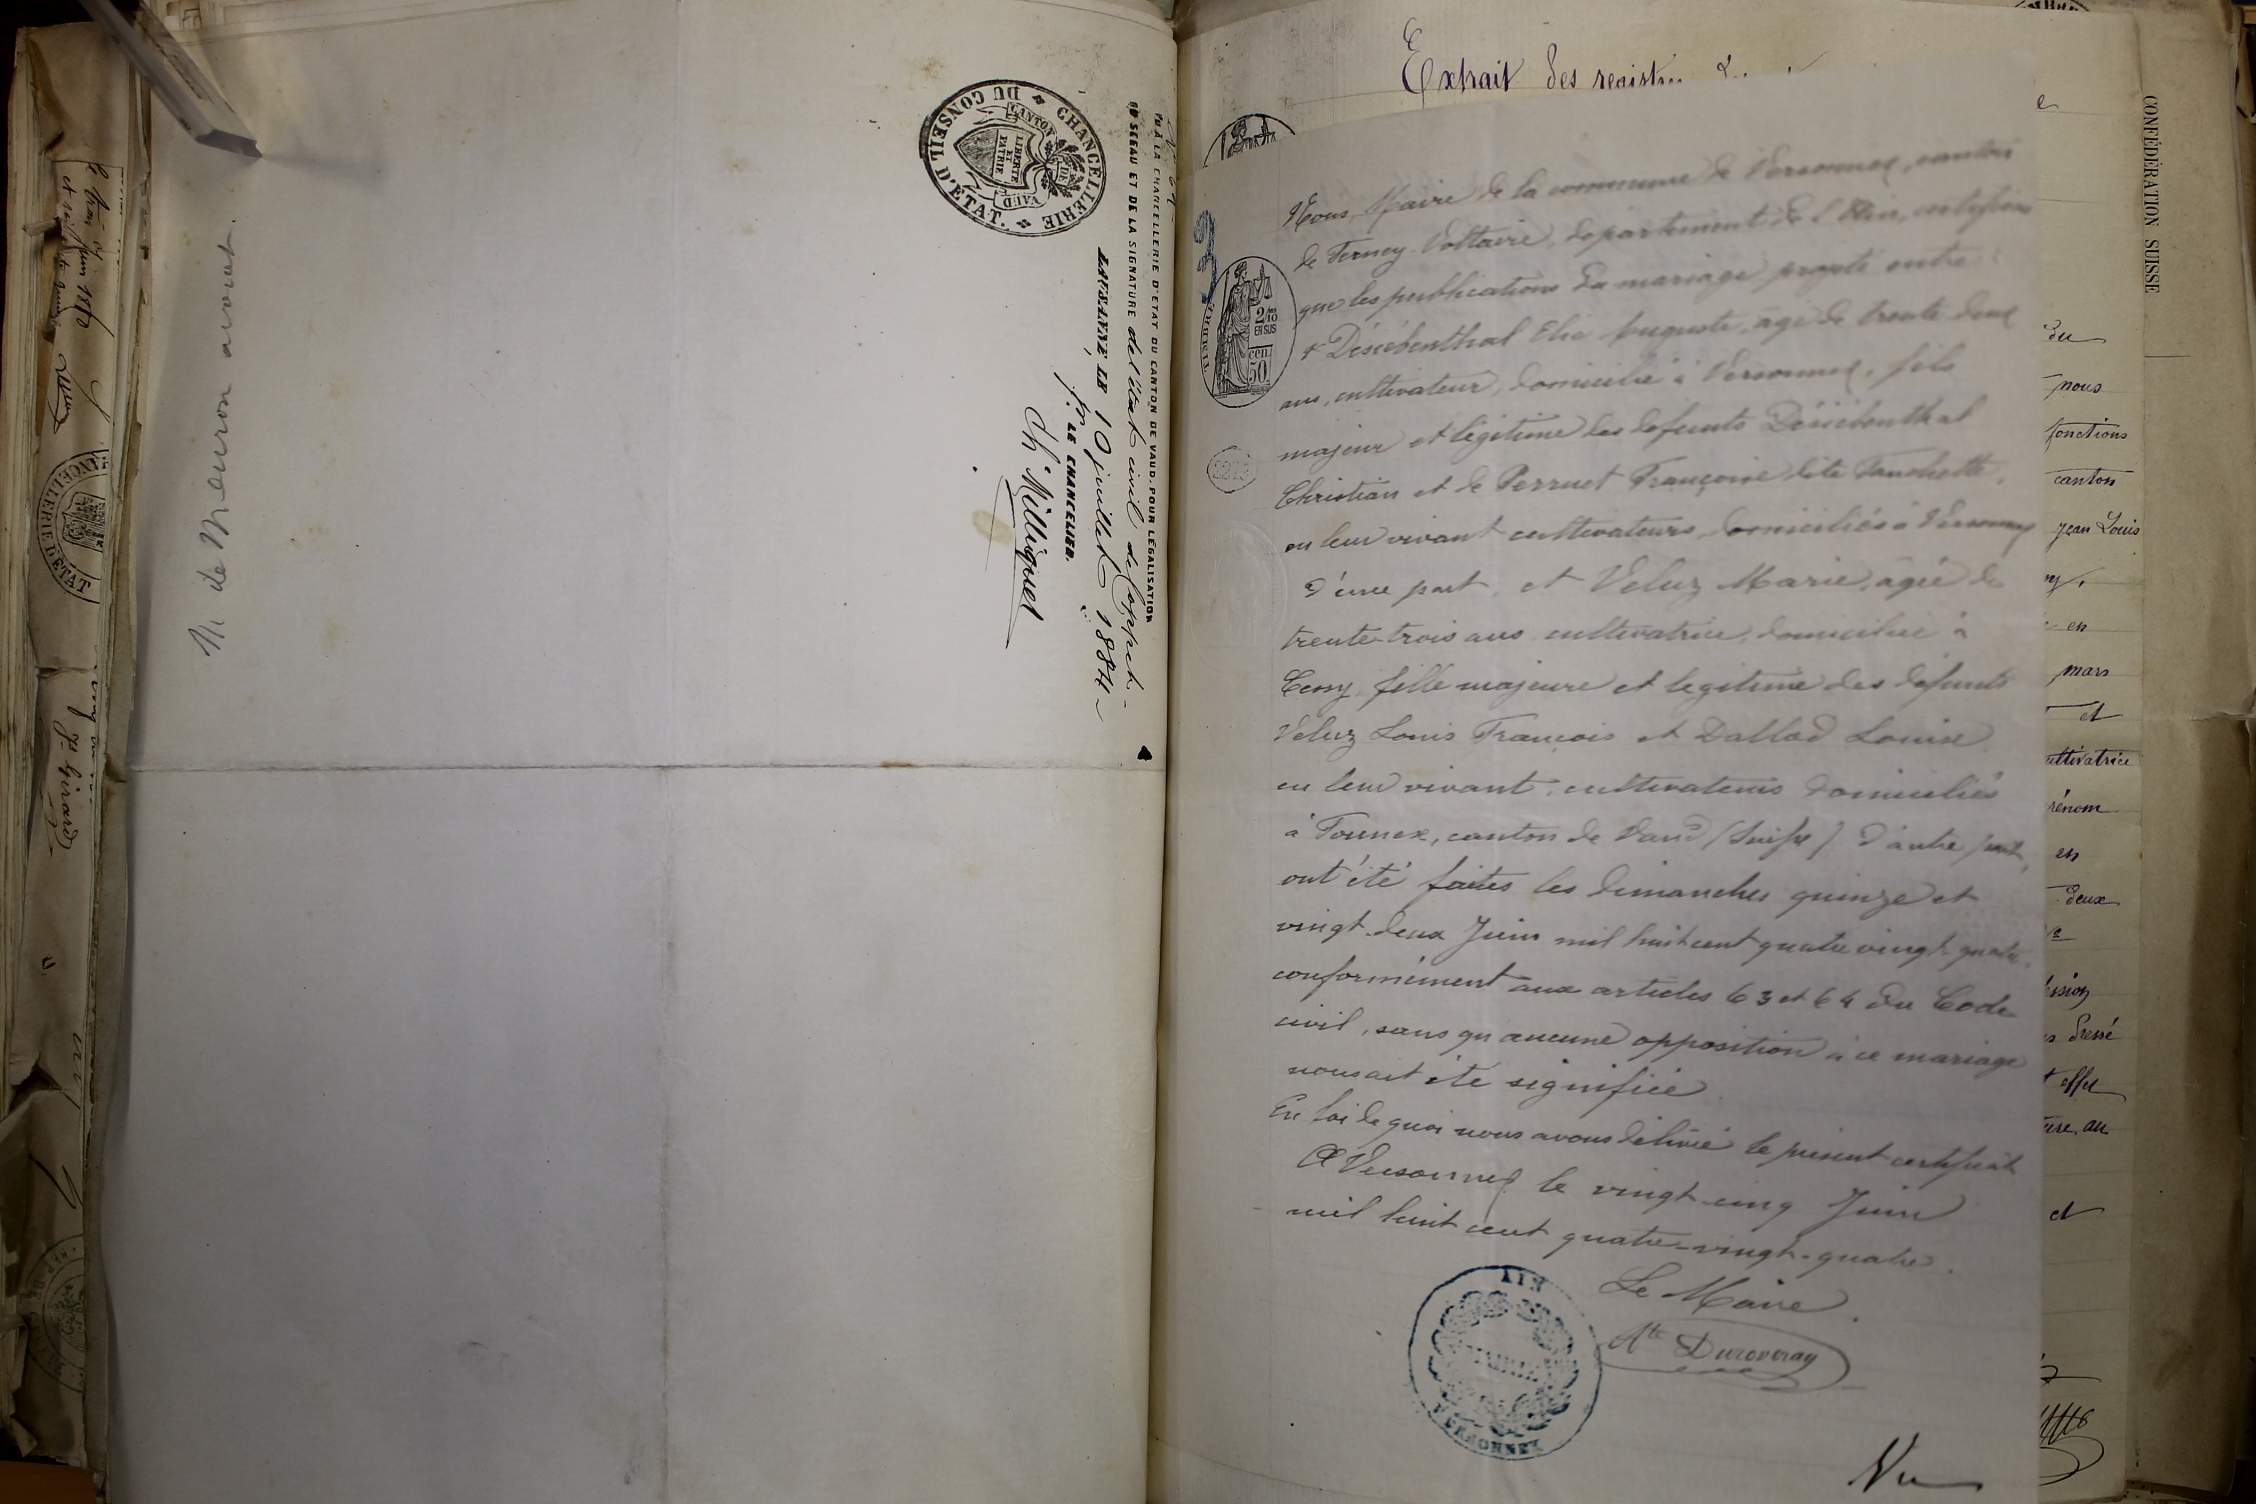 M. de Meuron avocat.
CHANCELLERIE DU CONSEIL D'ETAT.
CANTON DE VAUD
LIBERTÉ ET PATRIE
VU À LA CHANCELLERIE D'ETAT DU CANTON DE VAUD, POUR LÉGALISATION
DU SCEAU ET DE LA SIGNATURE de l'état civil de Coppet.
LAUSANNE LE 10 juillet 1884
p. LE CHANCELIER.
Ch. Milliquet
Extrait des registres
CONFÉDÉRATION SUISSE
3
2/10 EN SUS
50 cen.
Nous, Maire de la commune de Versonnex, canton
de Ferney-Voltaire, département de l'Ain, certifions
que les publications du mariage projeté entre
Désiébenthal Elie Auguste, âgé de trente deux
ans, cultivateur, domicilié à Versonnex, fils
majeur et légitime des défunts Désiébenthal
Christian et de Perruet Françoise dite Fanchette,
en leur vivant cultivateurs, domiciliés à Versonnex
d'une part, et Veluz Marie, âgée de
trente-trois ans cultivatrice, domiciliée à
Cessy, fille majeure et légitime des défunts
Veluz Louis François et Dallod Louise
en leur vivant, cultivateurs domiciliés
à Founex, canton de Vaud (Suisse) d'autre part,
ont été faites les dimanches quinze et
vingt-deux Juin mil huit cent quatre vingt quatre,
conformément aux articles 63 et 64 du Code
civil, sans qu'aucune opposition à ce mariage
nous ait été signifiée
En foi de quoi nous avons délivré le présent certificat
A Versonnex le vingt-cinq Juin
mil huit cent quatre-vingt-quatre.
Le Maire
Ate Duroveray
AIN
MAIRIE
VERSONNEX
Vu
du
nous
fonctions
canton
Jean Louis
en
mars
et
en
deux
dressé
effet
au
et